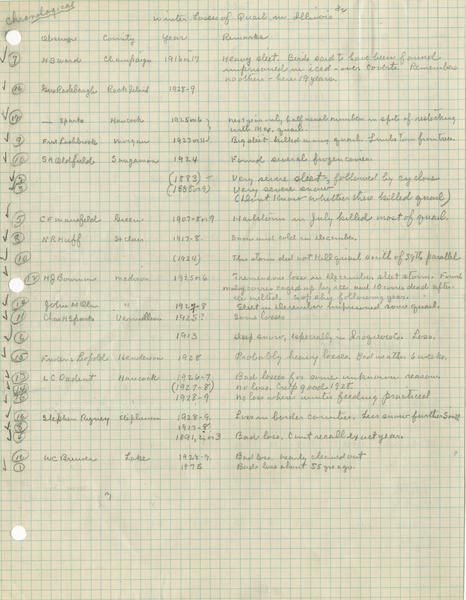 Chronological
Winter Losses of Quail in Illinois
Observer County Year Remarks
7 H B Ward Champaign 1916 or 17 Heavy sleet. Birds said to have been found
imprisoned in iced-over coverts. Remembers
no others - here 19 years.
Geo Rodebaugh Rock Island 1928-9
— Sparks Hancock 1925 or 6 next year only half usual number in spite of restocking
with Mex. quail.
9 Fred Lashbrook Morgan 1923 or 4 Big sleet killed many quail. Limbs torn from trees.
10 S A Oldfields Sangamon 1924 Found several frozen covies.
2 (1883) - Very severe sleet, followed by cyclone
3 (1885 or 9) Very severe snow
(Didnt know whether these killed quail)
5 C F Mansfield Green 1907-8 or 9 Hailstorm in July killed most of quail.
8 N R Huff St Clair 1917-8 Snow and cold in December.
10 (1924) This storm did not kill quail south of 39th parallel
12 H J Bowman Madison 1925 or 6 Tremendous loss in December sleet storm. Found
many covies caged up by ice and 10 covies dead after
ice melted. following year.
14 John M Olin " 1927-8 Sleet in December imprisoned some quail.
11 Chas H Sparks Vermillion 1925? Some losses
6 1913 Deep snow, especially in Iroquois Co. Loss.
15 Leopold Henderson 1928 Probably heavy losses. Bad weather 6 weeks.
13 L C Dadant Hancock 1926-7 Bad losses for some unknown reason
14 (1927-8) no loss. Crop good 1928
15 1928-9 No loss where winter feeding practiced
16 Stephen Stephenson 1928-9 Loss in border counties. Less snow further South
8 1917-8
4 1891, 2, or 3 Bad loss. Cant recall exact year.
16 W C Brewer Lake 1928-9 Bad loss. nearly cleaned out
1 1875 Bad loss about 55 yrs ago.
?